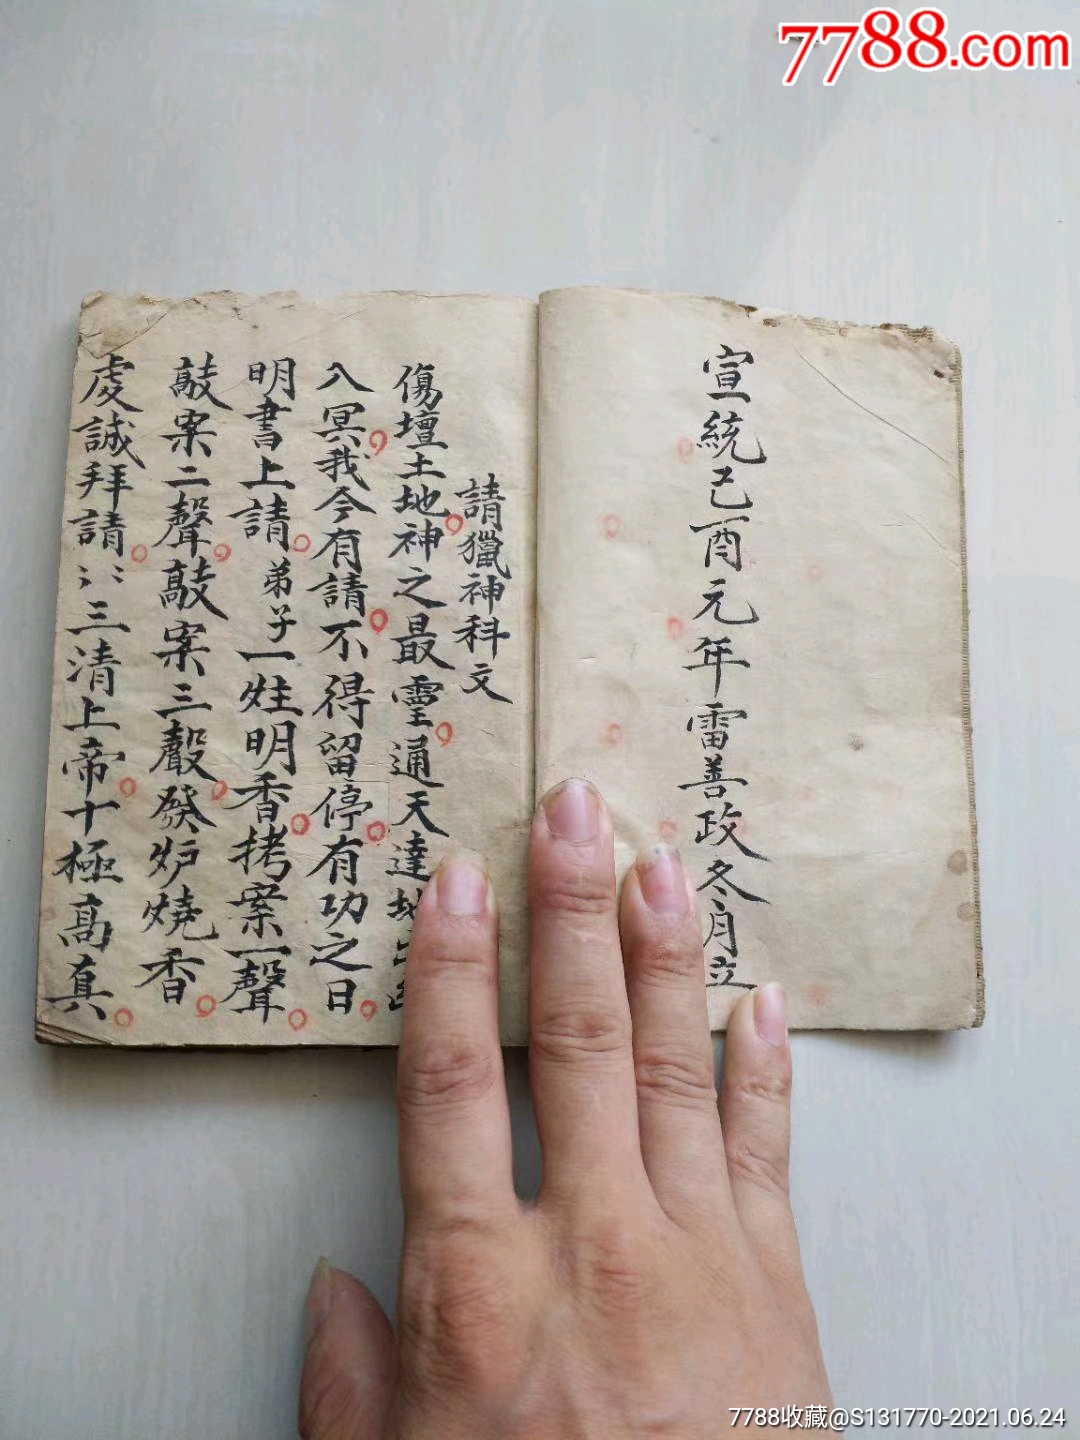 7788.com
宣統己酉元年雷善政冬月立
請獵神科文
傷壇土地神之最靈通天達地
八冥我今有請不得留停有功之日
明書上請弟子一炷明香拷案一聲
敲案二聲敲案三聲發炉燒香
虔誠拜請⺀⺀三清上帝十極高真
7788收藏@S131770-2021.06.24